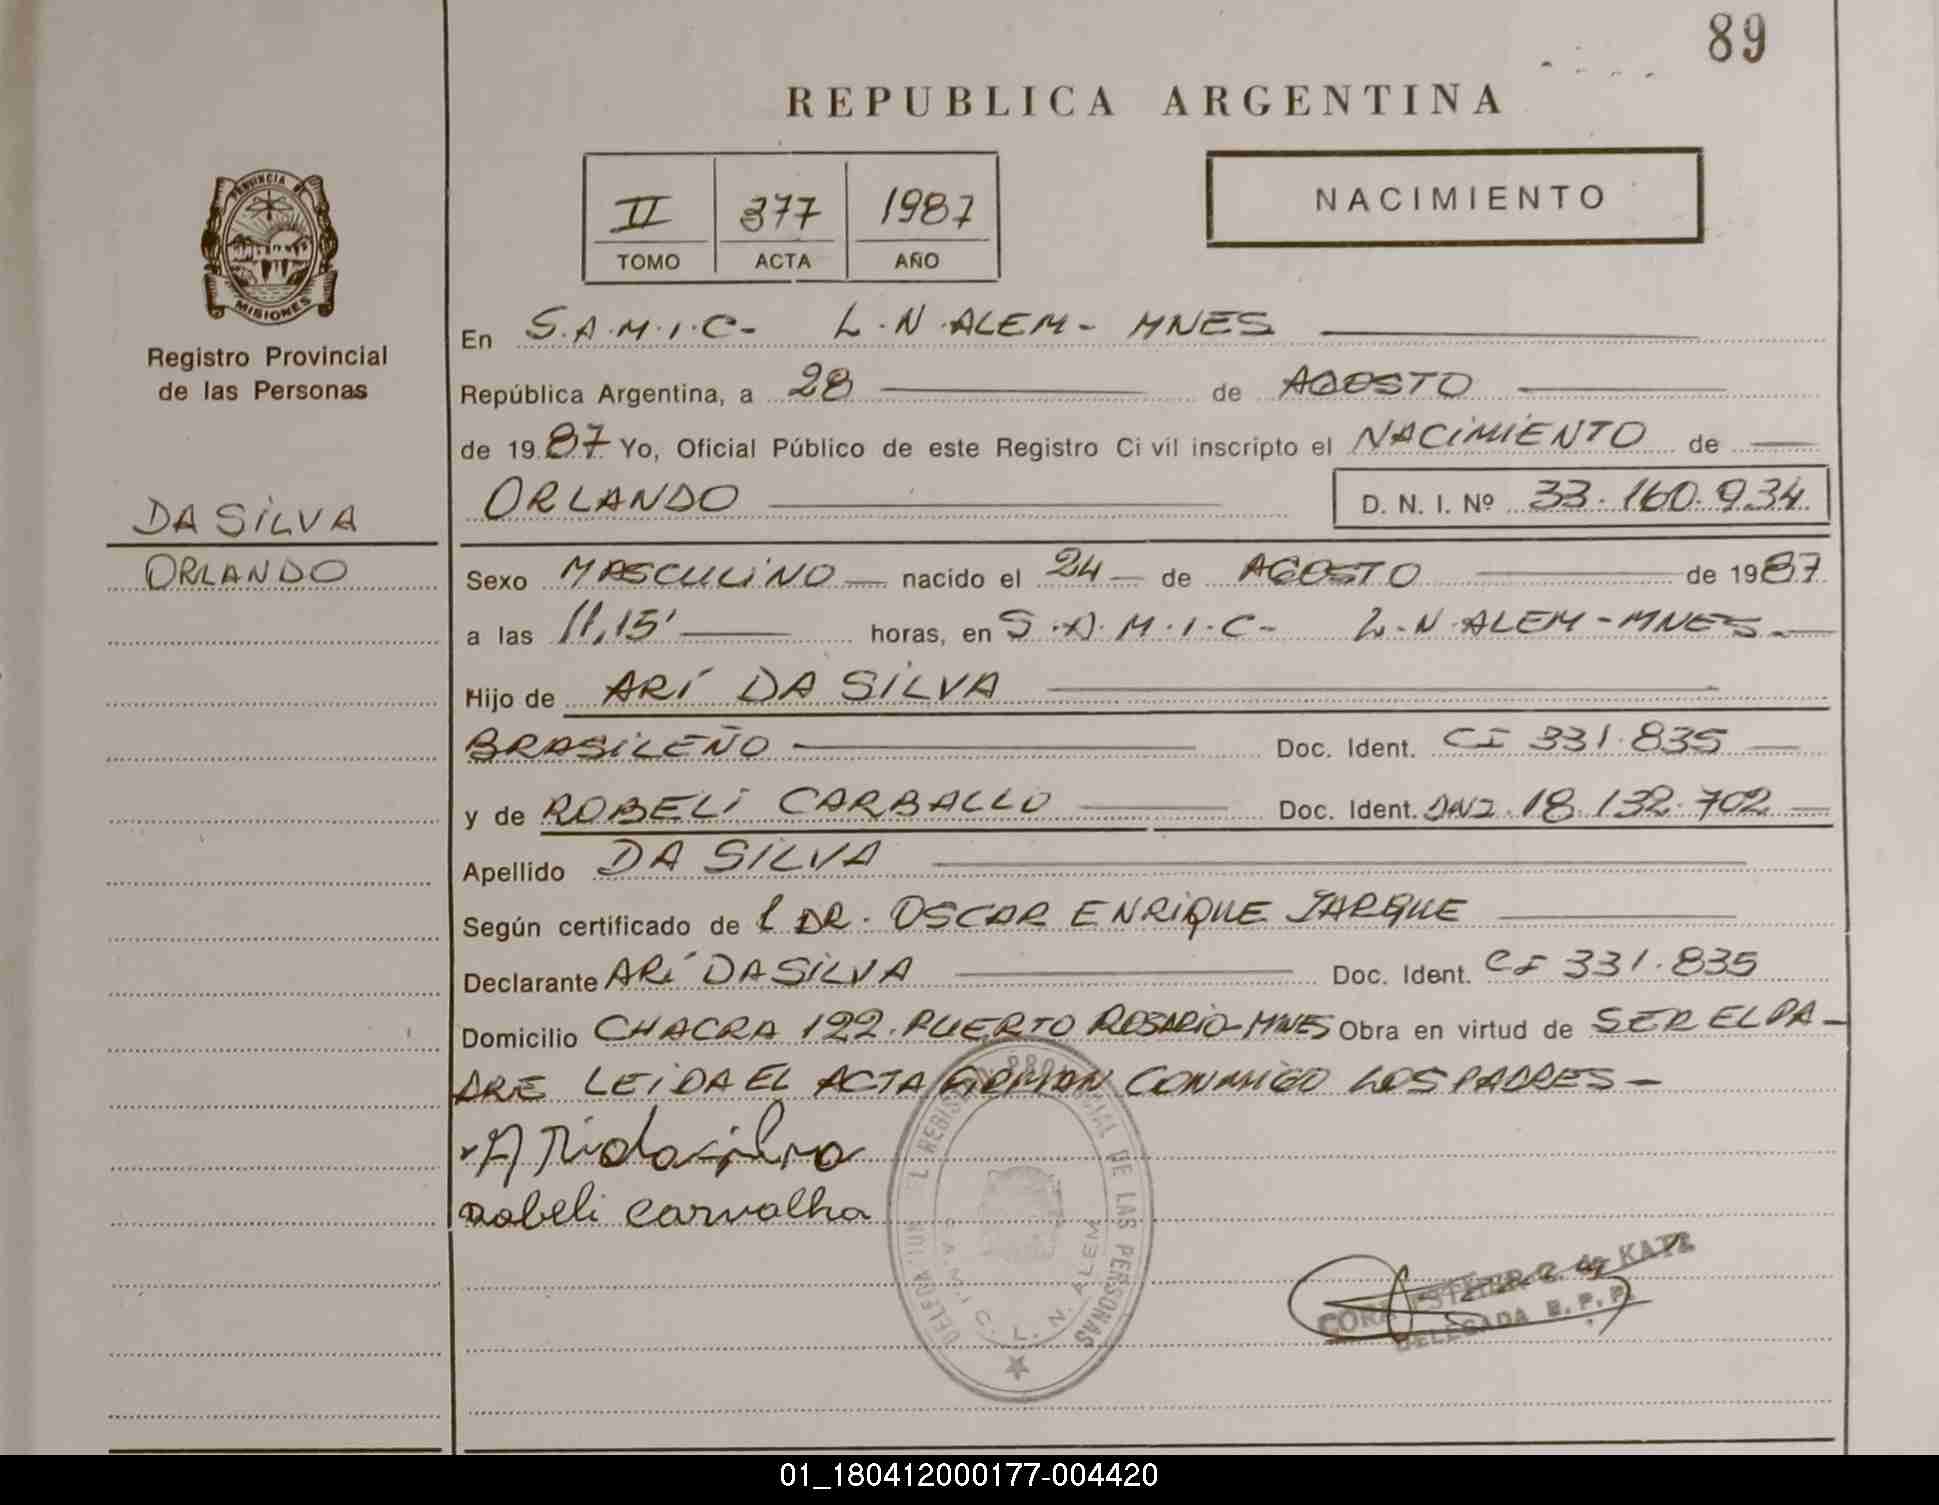 89
REPUBLICA ARGENTINA
II 377 1987
TOMO ACTA AÑO
NACIMIENTO
PROVINCIA DE
MISIONES
Registro Provincial
de las Personas
DA SILVA
ORLANDO
En S.A.M.I.C- L.N.ALEM- MNES
República Argentina, a 28 de AGOSTO
de 1987 Yo, Oficial Público de este Registro Civil inscripto el NACIMIENTO de
ORLANDO D. N. I. Nº 33.160.934
Sexo MASCULINO nacido el 24 de AGOSTO de 1987
a las 11,15' horas, en S.A.M.I.C- L.N.ALEM-MNES-
Hijo de ARÍ DA SILVA
BRASILEÑO Doc. Ident. CI 331.835
y de ROBELI CARBALLO Doc. Ident. DNI.18.132.702
Apellido DA SILVA
Según certificado de l DR. OSCAR ENRIQUE JARQUE
Declarante ARÍ DA SILVA Doc. Ident. CI 331.835
Domicilio CHACRA 122.PUERTO ROSARIO-MNES Obra en virtud de SER EL PA-
DRE LEIDA EL ACTA FIRMAN CONMIGO LOS PADRES-
Ari da silva
Robeli Carvalha
REGISTRO PROVINCIAL DE LAS PERSONAS
S.A.M.I.C. L. N. ALEM
CORA ESTHER G. de KATZ
DELEGADA R.P.P.
01_180412000177-004420